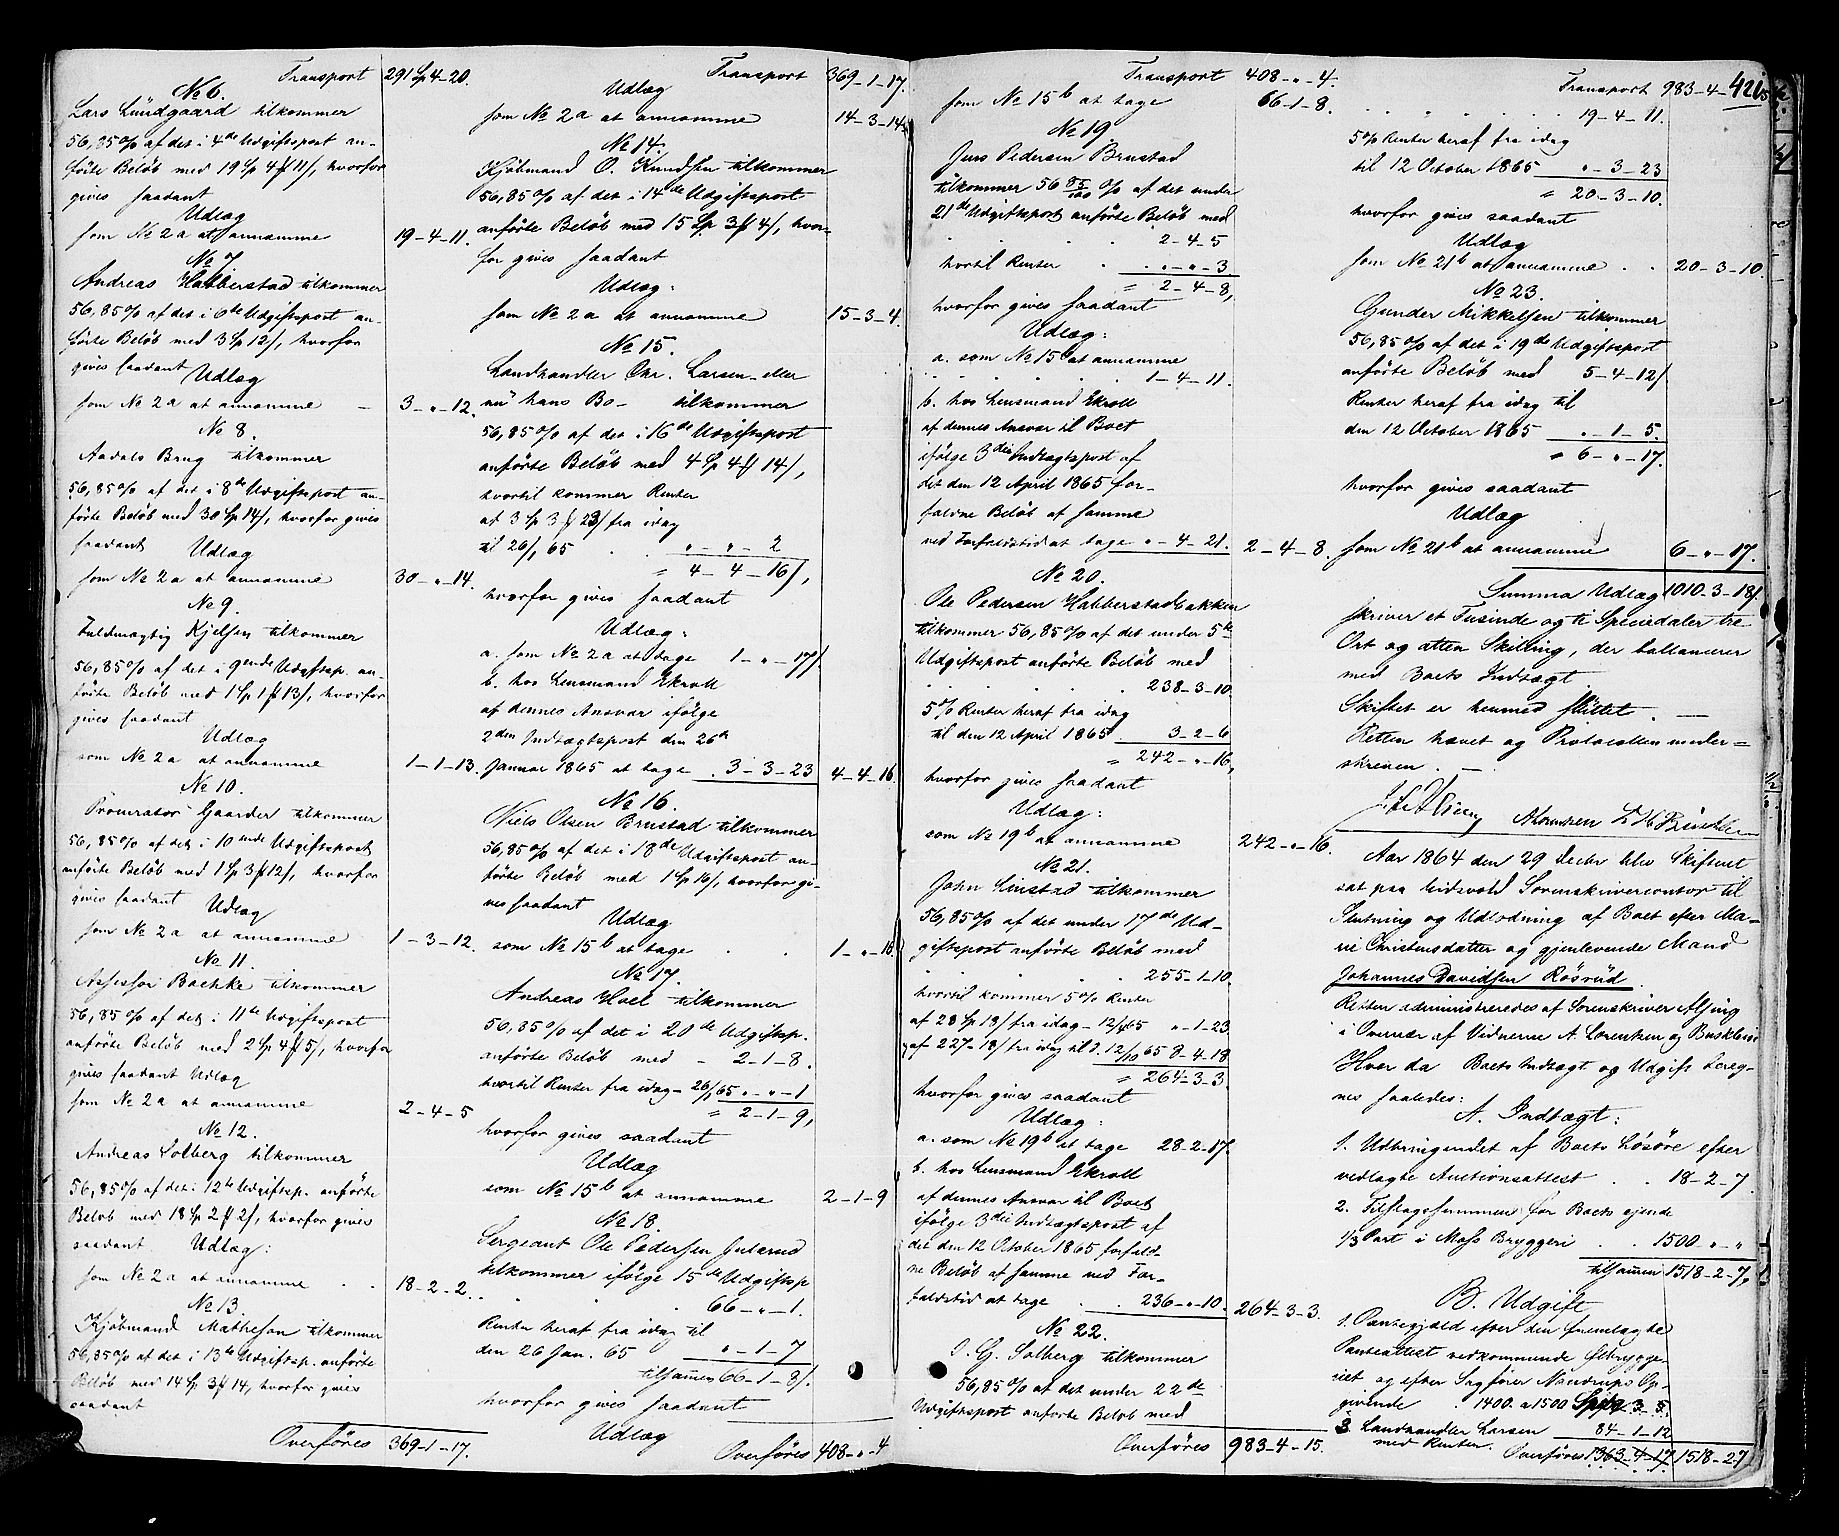 Transport 291 Sp 4-20.
No 6.
Lars Lundgaard tilkommer
56,85 % af det i 4de Udgiftspost an-
förte Belöb med 19 Sp 4 ß 11/, hvorfor
gives saadant
Udlæg
som No 2a at annamme 19-4-11.
No 7.
Andreas Habberstad tilkommer
56,85 % af det i 6te Udgiftspost an-
förte Belöb med 3 Sp 12/, hvorfor
gives saadant
Udlæg
som No 2a at annamme - 3-"-12.
No 8.
Aadals Brug tilkommer
56,85 % af det i 8de Udgiftspost an-
förte Belöb med 30 Sp 14/, hvorfor gives
saadant Udlæg
som No 2a at annamme 30-"-14.
No 9.
Fuldmægtig Kjelsen tilkommer
56,85 % af det i 9ende Udgiftsp. an-
förte Belöb med 1 Sp 1 ß 13/, hvorfor
gives saadant
Udlæg
som No 2a at annamme 1-1-13.
No 10.
Procurator Gaarder tilkommer
56,85 % af det i 10ende Udgiftspost
anförte Belöb med 1 Sp 3 ß 12/, hvorfor
gives saadant Udlæg
som No 2a at annamme 1-3-12.
No 11.
Assessor Baehke tilkommer
56,85 % af det i 11te Udgiftspost
anförte Belöb med 2 Sp 4 ß 5/, hvorfor
gives saadant Udlæg
som No 2a at annamme 2-4-5
No 12.
Andreas Solberg tilkommer
56,85 % af det i 12te Udgiftsp. anförte
Belöb med 18 Sp 2 ß 2/, hvorfor gives
saadant Udlæg:
som No 2a at annamme . . 18-2-2.
No 13.
Kjöbmand Matheson tilkommer
56,85 % af det i 13de Udgiftsp. anförte
Belöb med 14 Sp 3 ß 14, hvorfor gives
saadant
Overföres 369-1-17.
Transport 369-1-17.
Udlæg
som No 2a at annamme 14-3-14.
No 14.
Kjöbmand O. Knudsen tilkommer
56,85 % af det i 14de Udgiftspost
anförte Belöb med 15 Sp 3 ß 4/, hvor-
for gives saadant
Udlæg:
som No 2a at annamme 15-3-4.
No 15.
Landhandler Chr. Larsen - eller
nu hans Bo - tilkommer
56,85 % af det i 16de Udgiftspost
anförte Belöb med 4 Sp 4 ß 14/,
hvortil kommer Renter
af 3 Sp 3 ß 23/ fra idag
til 26/1 65 . . "-"-2
= 4-4-16/,
hvorfor gives saadant
Udlæg:
a. som No 2a at tage 1-"-17/
b. hos Lensmand Ekroll
af dennes Ansvar ifölge
2den Indtægtspost den 26de
Januar 1865 at tage . 3-3-23 4-4-16.
No 16.
Niels Olsen Brustad tilkommer
56,85 % af det i 18de Udgiftspost an-
förte Belöb med 1 Sp 16/, hvorfor gi-
ves saadant
Udlæg
som No 15b at tage . . 1-"-16.
No 17.
Andreas Hoel tilkommer
56,85 % af det i 20de Udgiftsp.
anförte Belöb med - 2-1-8.
hvortil Renter fra idag - 26/1 65 "-"-1
= 2-1-9,
hvorfor gives saadant
Udlæg
som No 15b at annamme 2-1-9
No 18.
Sergeant Ole Pedersen Julsrud
tilkommer ifölge 15de Udgiftsp
. . . 66-"-1.
Renter heraf fra idag til
den 26 Jan. 65 "-1-7
tilsamen 66-1-8/.
hvorfor gives saadant
Udlæg
Overföres 408-"-4
Transport 408-"-4.
som No 15b at tage 66-1-8.
No 19.
Jens Pedersen Brustad
tilkommer 56 85/100 % af det under
21de Udgiftspost anförte Belöb med
. . . . 2-4-5
hvortil Renter . . "-"-3
= 2-4-8,
hvorfor gives saadant
Udlæg:
a. som No 15b at annamme
. . . . 1-4-11.
b. hos Lensmand Ekroll
af dennes Ansvar til Boet
ifölge 3die Indtægtspost af
det den 12 April 1865 for-
faldne Belöb af samme
ved Forfaldstid at tage "-4-21. 2-4-8.
No 20.
Ole Pedersen Habberstadbakken
tilkommer 56,85 % af det under 5te
Udgiftspost anförte Belöb med
. . . . 238-3-10.
5 % Renter heraf fra idag
til den 12 April 1865 . 3-2-6
= 242-"-16,
hvorfor gives saadant
Udlæg:
som No 19b at annamme 242-"-16.
No 21.
John Linstad tilkommer
56,85 % af det under 17de Ud-
giftspost anförte Belöb med
. . . . 255-1-10.
hvortil kommer 5 % Renter
af 28 Sp 18/ fra idag - 12/4 65 "-1-23.
af 227-18/ fra idag til d. 12/10 65 8-4-18
= 264-3-3.
hvorfor gives saadant
Udlæg:
a. som No 19b at tage 28-2-17.
b. hos Lensmand Ekroll
af dennes Ansvar til Boet
ifölge 3die Indtægtspost af
det den 12 October 1865 forfald-
ne Belöb af samme ved For-
faldstid at tage . 236-"-10. 264-3-3.
No 22.
G. Solberg tilkommer
56,85 % af det under 22de
Udgiftspost anförte Belöb med
Overföres 983-4-15.
421
Transport 983-4-15
. . . . 19-4-11.
5 % Renter heraf fra idag
til 12 October 1865 "-3-23
= 20-3-10.
hvorfor gives saadant
Udlæg
som No 21b at annamme . . 20-3-10.
No 23.
Gunder Mikkelsen tilkommer
56,85 % af det i 19de Udgiftspost
anförte Belöb med 5-4-12/
Renter heraf fra idag til
den 12 October 1865 "-1-5.
= 6-"-17.
hvorfor gives saadant
Udlæg
som No 21b at annamme 6-"-17.
Summa Udlæg 1010-3-18/.
skriver et Tusinde og ti Speciedaler tre
Ort og atten Skilling, der ballancerer
med Boets Indtægt
Skiftet er hermed sluttet. -
Retten hævet og Protocollen under-
skreven. -
Aar 1864 den 29 Decbr blev Skifteret
sat paa Eidsvold Sorenskrivercontor til
Slutning og Udlodning af Boet efter Ma-
rie Christensdatter og gjenlevende Mand
Johannes Davidsen Rösrüd.
Retten administreredes af Sorenskriver Alsing
i Overvær af Vidnerne A. Lorentzen og Busklein
Hver da Boets Indtægt og Udgift bereg-
nes saaledes:
A. Indtægt:
1. Udbringendet af Boets Lösöre efter
vedlagte Auctionsattest . . 18-2-7.
2. Tilslagssummen for Boets eiende
1/3 Part i Moss Bryggeri . . 1500-"-"
tilsamen 1518-2-7,
B. Udgift
1. Pantegjeld efter den fremlagte
Panteattest vedkommende Ølbrygge-
riet og efter Sagförer Nandrups Op-
givende . 1400. a 1500
3 Landhandler Larsen 84-1-12
med Renter.
Overföres 1363-4-17. 1518-2-7